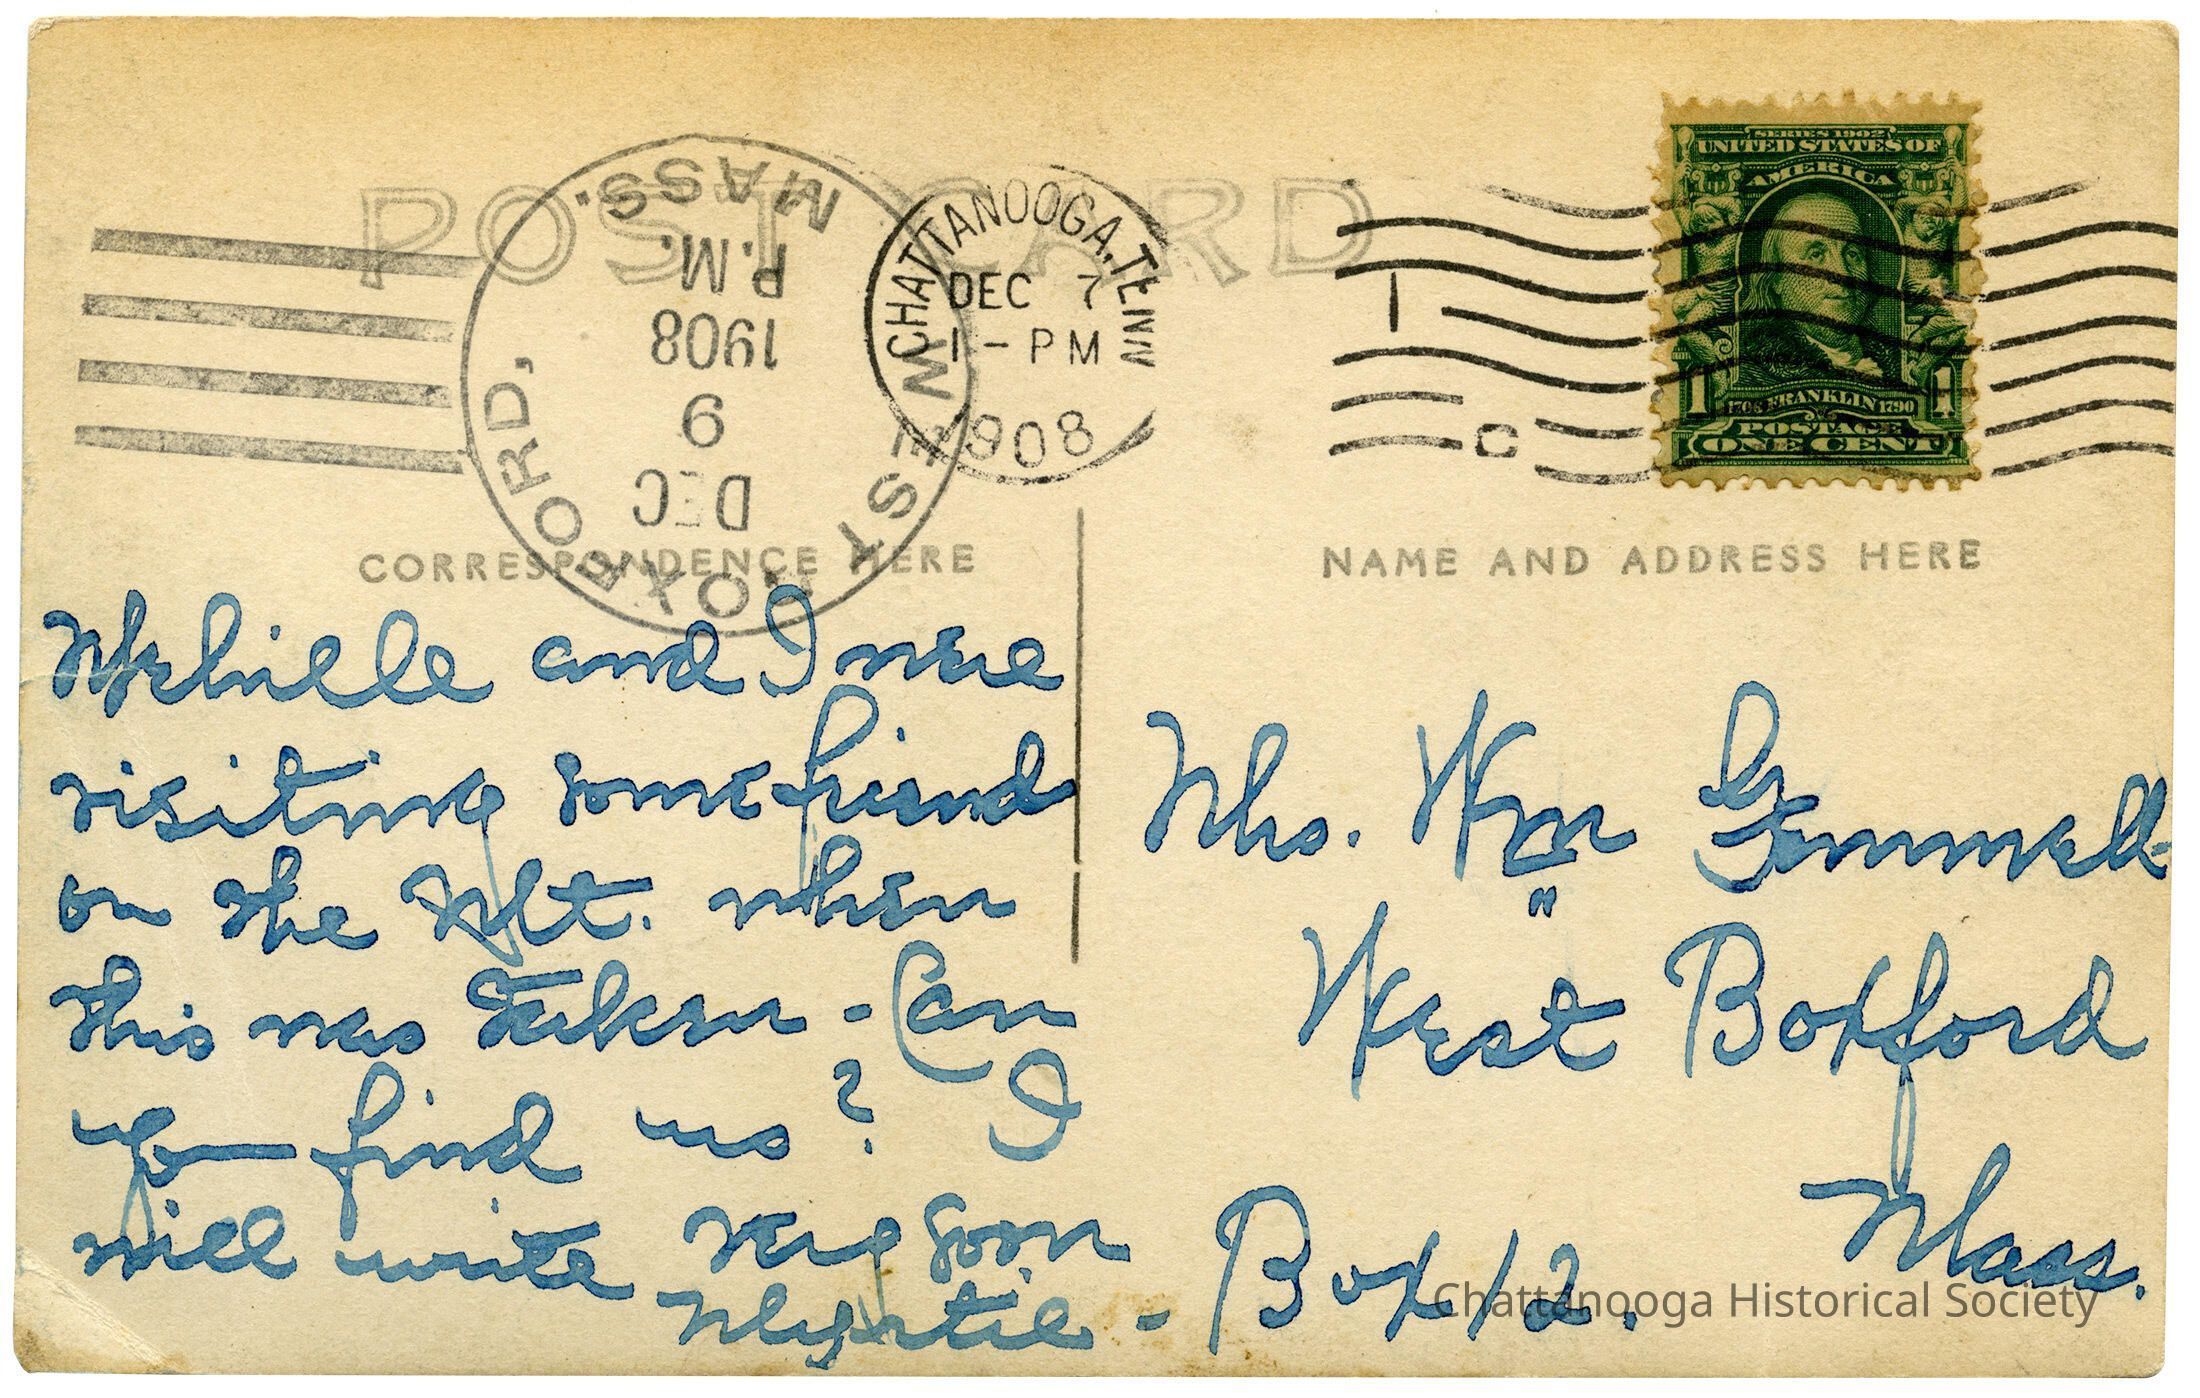 POST CARD
WEST BOXFORD,
MASS.
P.M.
1908
9
DEC
CHATTANOOGA, TENN
DEC 7
1-PM
1908
1
C
SERIES 1902
UNITED STATES OF
AMERICA
1 1706 FRANKLIN 1790 1
POSTAGE
ONE CENT
CORRESPONDENCE HERE
NAME AND ADDRESS HERE
and I were
visiting some friends
on the Mt. when
this was taken - Can
yo find us? I
will write very soon
Myrtie -
Mrs. Wm Gemmell
"
West Boxford
Mass.
Box 12.
Chattanooga Historical Society